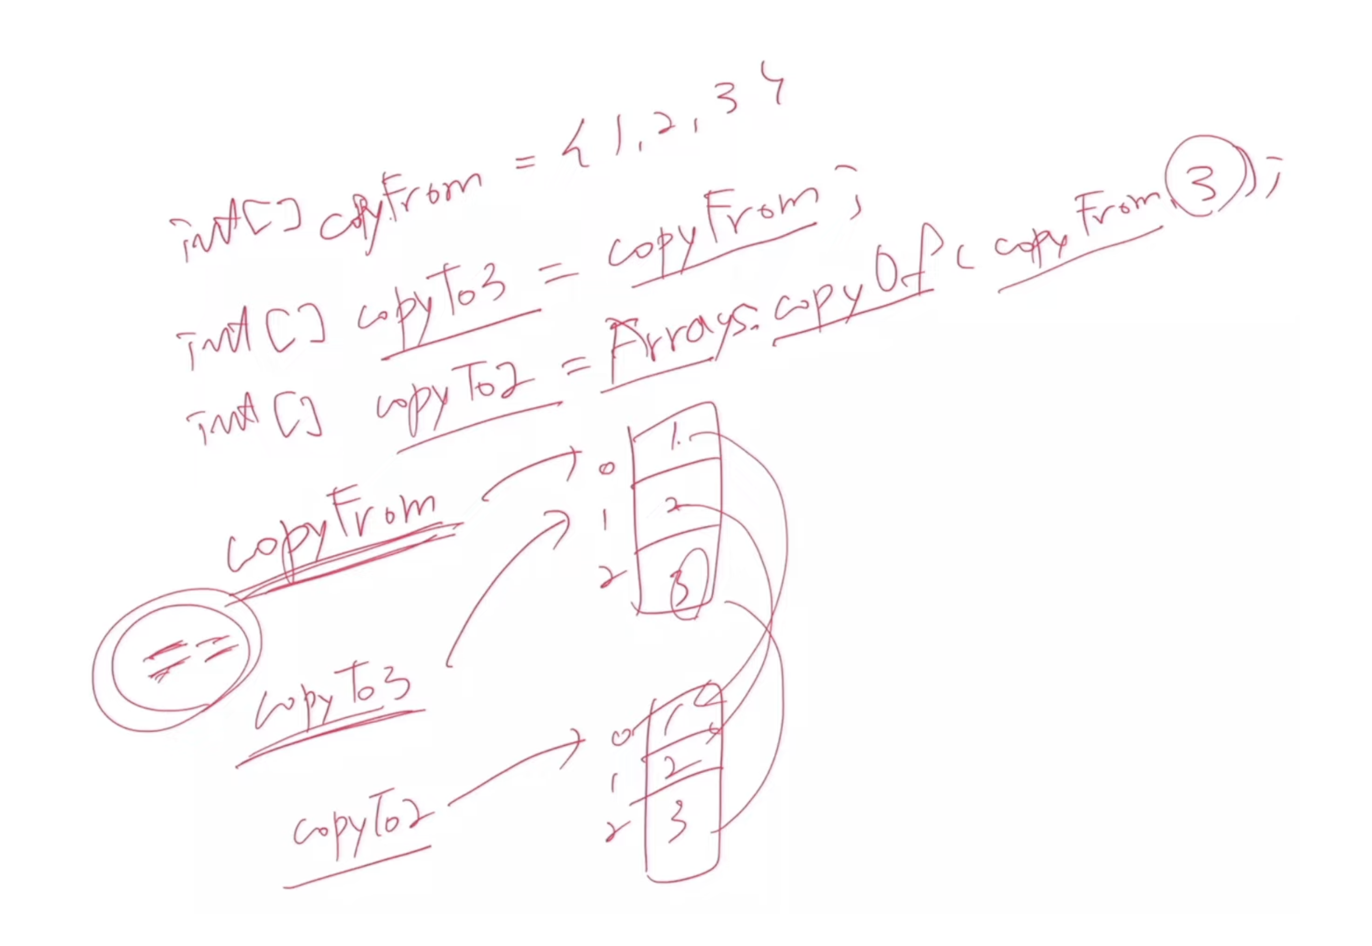 int[] copyFrom = {1, 2, 3}
int[] copyTo3 = copyFrom;
int[] copyTo2 = Arrays.copyOf(copyFrom, 3);
copyFrom
0 1
1 2
2 3
==
copyTo3
copyTo2
0 1
1 2
2 3